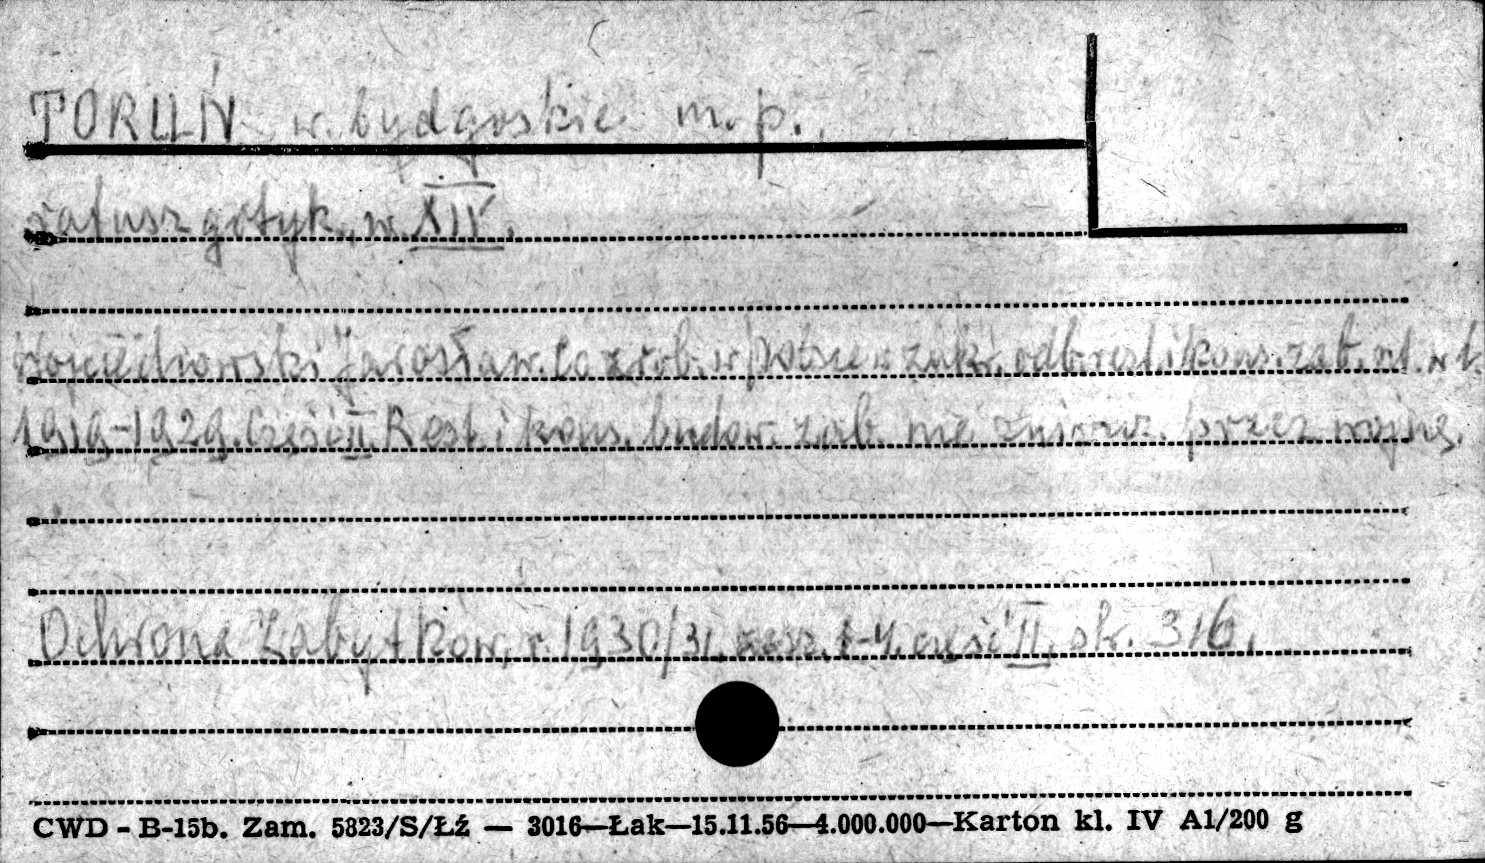 TORUŃ w. bydgoskie m. p.
ratusz gotyk. w. XIV.
Wojciechowski Jarosław. Co zrob. w Polsce w zakr. odb. rest. i kons. zab. szt. w l.
1919-1929. Część II. Rest. i kons. budow. zab. nie zniszcz. przez wojnę.
Ochrona Zabytków, r. 1930/31, zesz. 1-4. część II, str. 316.
CWD - B-15b. Zam. 5823/S/Łź — 3016—Łak—15.11.56—4.000.000—Karton kl. IV A1/200 g